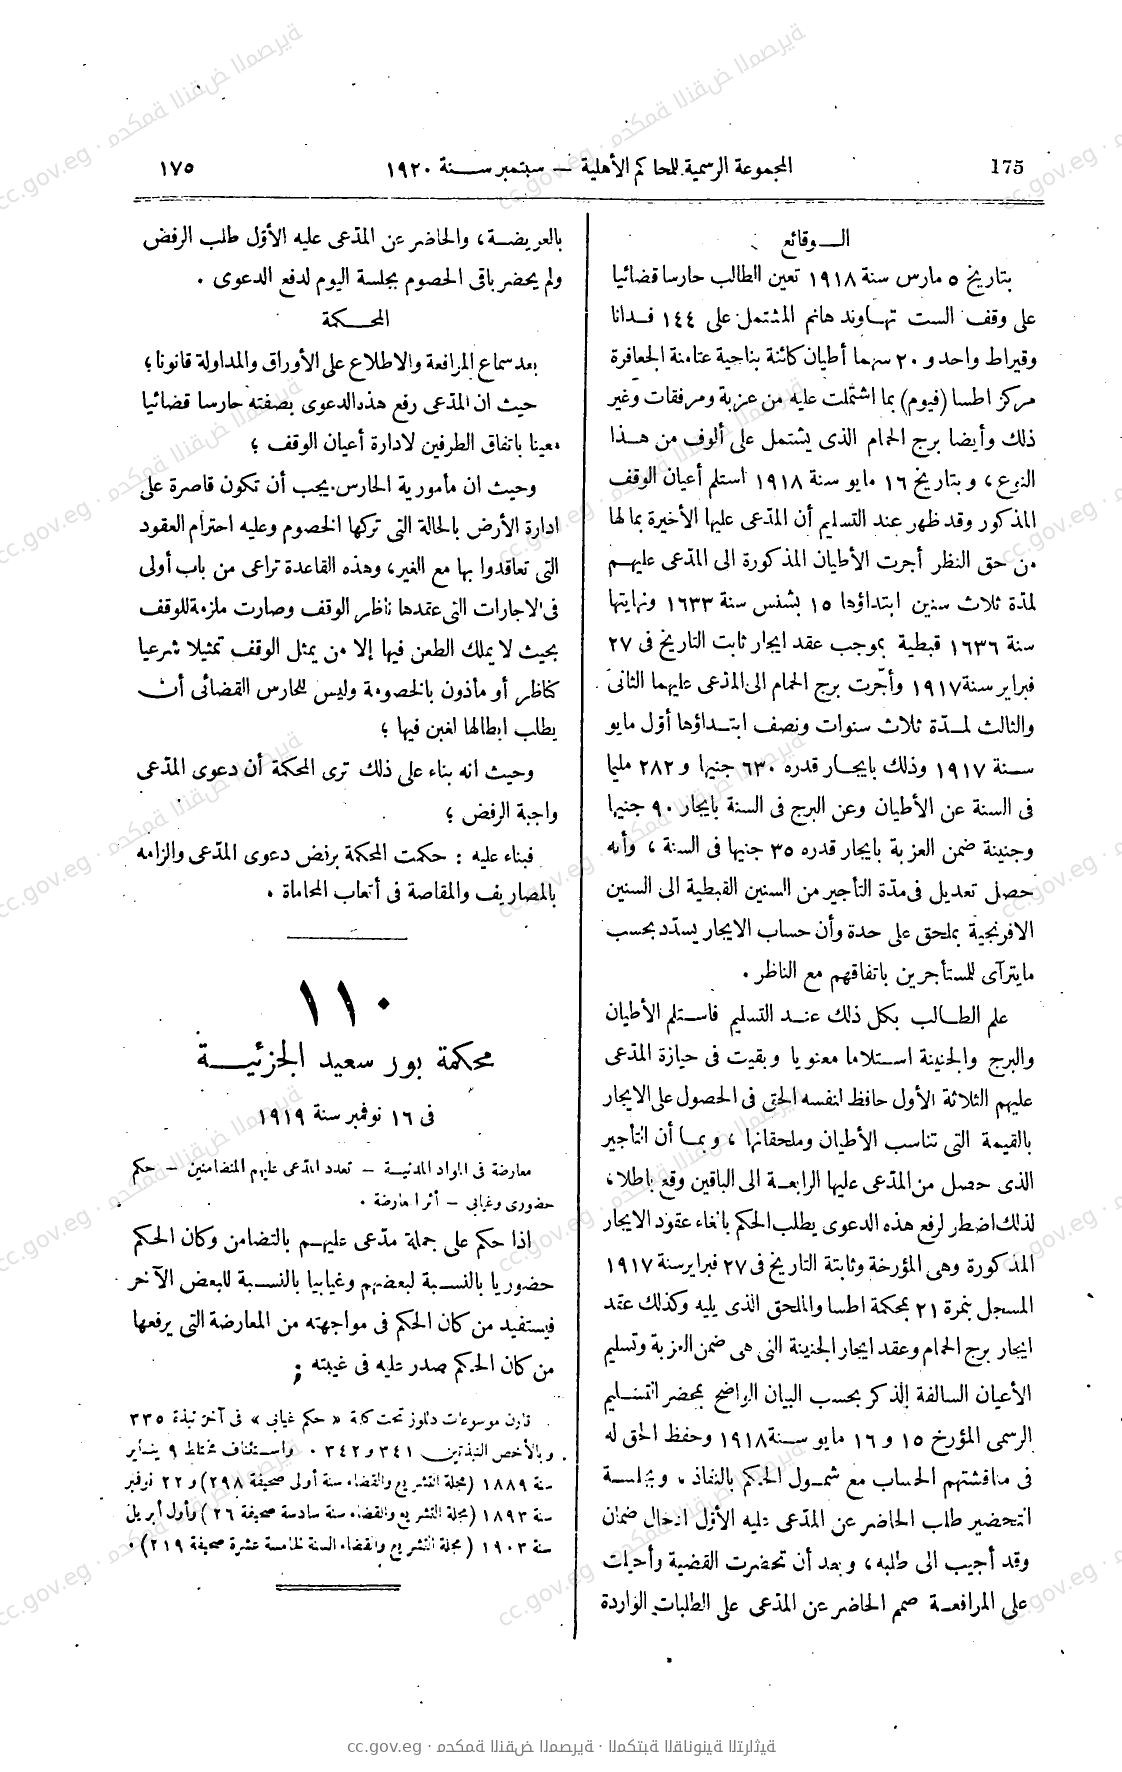 175
المجموعة الرسمية للمحاكم الأهلية – سبتمبر سنة ١٩٢٠
١٧٥
الوقائع
بتاريخ ٥ مارس سنة ١٩١٨ تعين الطالب حارسا قضائيا
على وقف الست تهاوند هانم المشتمل على ١٤٤ فدانا
وقيراط واحد و ٢٠ سهما أطيان كائنة بناحية عتامنة الجعافرة
مركز اطسا (فيوم) بما اشتملت عليه من عزبة ومرفقات وغير
ذلك وأيضا برج الحمام الذى يشتمل على ألوف من هذا
النوع ، وبتاريخ ١٦ مايو سنة ١٩١٨ استلم أعيان الوقف
المذكور وقد ظهر عند التسليم أن المدّعى عليها الأخيرة بما لها
من حق النظر أجرت الأطيان المذكورة الى المدّعى عليهم
لمدّة ثلاث سنين ابتداؤها ١٥ بشنس سنة ١٦٣٣ ونهايتها
سنة ١٦٣٦ قبطية بموجب عقد ايجار ثابت التاريخ فى ٢٧
فبراير سنة ١٩١٧ وأجّرت برج الحمام الى المدّعى عليهما الثانى
والثالث لمدّة ثلاث سنوات ونصف ابتداؤها أوّل مايو
سنة ١٩١٧ وذلك بايجار قدره ٦٣٠ جنيها و ٢٨٢ مليما
فى السنة عن الأطيان وعن البرج فى السنة بايجار ٩٠ جنيها
وجنينة ضمن العزبة بايجار قدره ٣٥ جنيها فى السنة ، وأنه
حصل تعديل فى مدّة التأجير من السنين القبطية الى السنين
الافرنجية بملحق على حدة وأن حساب الايجار يسدّد بحسب
مايترآى للمستأجرين باتفاقهم مع الناظر .
علم الطالب بكل ذلك عند التسليم فاستلم الأطيان
والبرج والجنينة استلاما معنويا وبقيت فى حيازة المدّعى
عليهم الثلاثة الأول حافظا لنفسه الحق فى الحصول على الايجار
بالقيمة التى تناسب الأطيان وملحقاتها ، وبما أن التأجير
الذى حصل من المدّعى عليها الرابعة الى الباقين وقع باطلا ،
لذلك اضطر لرفع هذه الدعوى يطلب الحكم بالغاء عقود الايجار
المذكورة وهى المؤرخة وثابتة التاريخ فى ٢٧ فبراير سنة ١٩١٧
المسجل بنمرة ٢١ بمحكمة اطسا والملحق الذى يليه وكذلك عقد
ايجار برج الحمام وعقد ايجار الجنينة التى هى ضمن العزبة وتسليم
الأعيان السالفة الذكر بحسب البيان الواضح بمحضر التسليم
الرسمى المؤرخ ١٥ و ١٦ مايو سنة ١٩١٨ وحفظ الحق له
فى مناقشتهم الحساب مع شمول الحكم بالنفاذ . وبجلسة
التحضير طلب الحاضر عن المدّعى عليه الأوّل ادخال ضمان
وقد أجيب الى طلبه ، وبعد أن تحضرت القضية وأحيلت
على المرافعة صمم الحاضر عن المدّعى على الطلبات الواردة
بالعريضة ، والحاضر عن المدّعى عليه الأوّل طلب الرفض
ولم يحضر باقى الخصوم بجلسة اليوم لدفع الدعوى .
المحكمة
بعد سماع المرافعة والاطلاع على الأوراق والمداولة قانونا ؛
حيث ان المدّعى رفع هذه الدعوى بصفته حارسا قضائيا
معينا باتفاق الطرفين لادارة أعيان الوقف ؛
وحيث ان مأمورية الحارس يجب أن تكون قاصرة على
ادارة الأرض بالحالة التى تركها الخصوم وعليه احترام العقود
التى تعاقدوا بها مع الغير ، وهذه القاعدة تراعى من باب أولى
فى الاجارات التى عقدها ناظر الوقف وصارت ملزمة للوقف
بحيث لا يملك الطعن فيها إلا من يمثل الوقف تمثيلا شرعيا
كناظر أو مأذون بالخصومة وليس للحارس القضائى أن
يطلب ابطالها لغبن فيها ؛
وحيث انه بناء على ذلك ترى المحكمة أن دعوى المدّعى
واجبة الرفض ؛
فبناء عليه : حكمت المحكمة برفض دعوى المدّعى والزامه
بالمصاريف والمقاصة فى أتعاب المحاماة .
١١٠
محكمة بور سعيد الجزئية
فى ١٦ نوفمبر سنة ١٩١٩
معارضة فى المواد المدنية – تعدد المدّعى عليهم المتضامنين – حكم
حضورى وغيابى – أثر المعارضة .
اذا حكم على جملة مدّعى عليهم بالتضامن وكان الحكم
حضوريا بالنسبة لبعضهم وغيابيا بالنسبة للبعض الآخر
فيستفيد من كان الحكم فى مواجهته من المعارضة التى يرفعها
من كان الحكم صدر عليه فى غيبته ؛
قارن موسوعات دالوز تحت كلمة « حكم غيابى » فى آخر نبذة ٣٣٥
وبالأخص النبذتين ٣٤١ و ٣٤٢ . واستئناف مختلط ٩ يناير
سنة ١٨٨٩ (مجلة التشريع والقضاء سنة أولى صحيفة ٢٩٨) و ٢٢ نوفمبر
سنة ١٨٩٣ (مجلة التشريع والقضاء سنة سادسة صحيفة ٢٦) وأول أبريل
سنة ١٩٠٣ (مجلة التشريع والقضاء السنة الخامسة عشرة صحيفة ٢١٩) .
cc.gov.eg · محكمة النقض المصرية · المكتبة القانونية التراثية